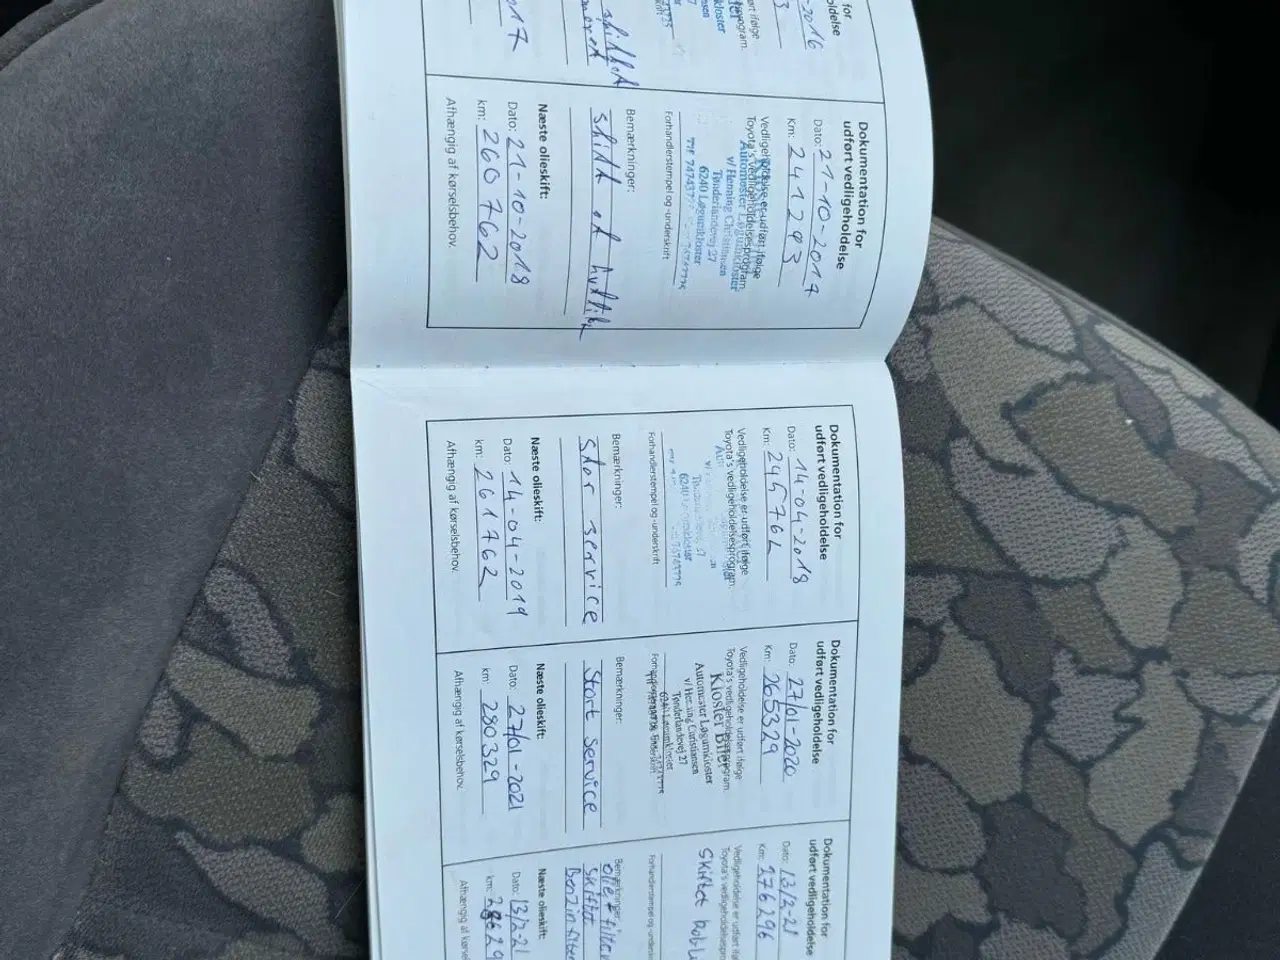 for
-2016
17
Dokumentation for
udført vedligeholdelse
Dato: 21-10-2017
Km: 241293
Vedligeholdelse er udført ifølge
Toyota's vedligeholdelsesprogram.
Automester Løgumkloster
v/ Henning Christiansen
Tønderlandevej 27
6240 Løgumkloster
Forhandlerstempel og -underskrift
Bemærkninger:
skidt et
Næste olieskift:
Dato: 21-10-2018
km: 260762
Afhængig af kørselsbehov.
Dokumentation for
udført vedligeholdelse
Dato: 14-04-2018
Km: 246762
Vedligeholdelse er udført ifølge
Toyota's vedligeholdelsesprogram.
Forhandlerstempel og -underskrift
Bemærkninger:
stor service
Næste olieskift:
Dato: 14-04-2019
km: 261762
Afhængig af kørselsbehov.
Dokumentation for
udført vedligeholdelse
Dato: 27/01-2020
Km: 265329
Vedligeholdelse er udført ifølge
Toyota's vedligeholdelsesprogram.
Kloster Biler
Automester Løgumkloster
v/ Henning Christiansen
Tønderlandevej 27
6240 Løgumkloster
Bemærkninger:
Stort service
Næste olieskift:
Dato: 27/01-2021
km: 280329
Afhængig af kørselsbehov.
Dokumentation for
udført vedligeholdelse
Dato: 13/2-21
Km: 276296
Vedligeholdelse er udført ifølge
Toyota's vedligeholdelsesprogram.
Skiftet
Forhandlerstempel og -undersk
Bemærkninger:
olie + filter
skiftet
Benzin filter
Næste olieskift:
Dato: 13/2-21
km:
Afhængig af kørselsbehov.